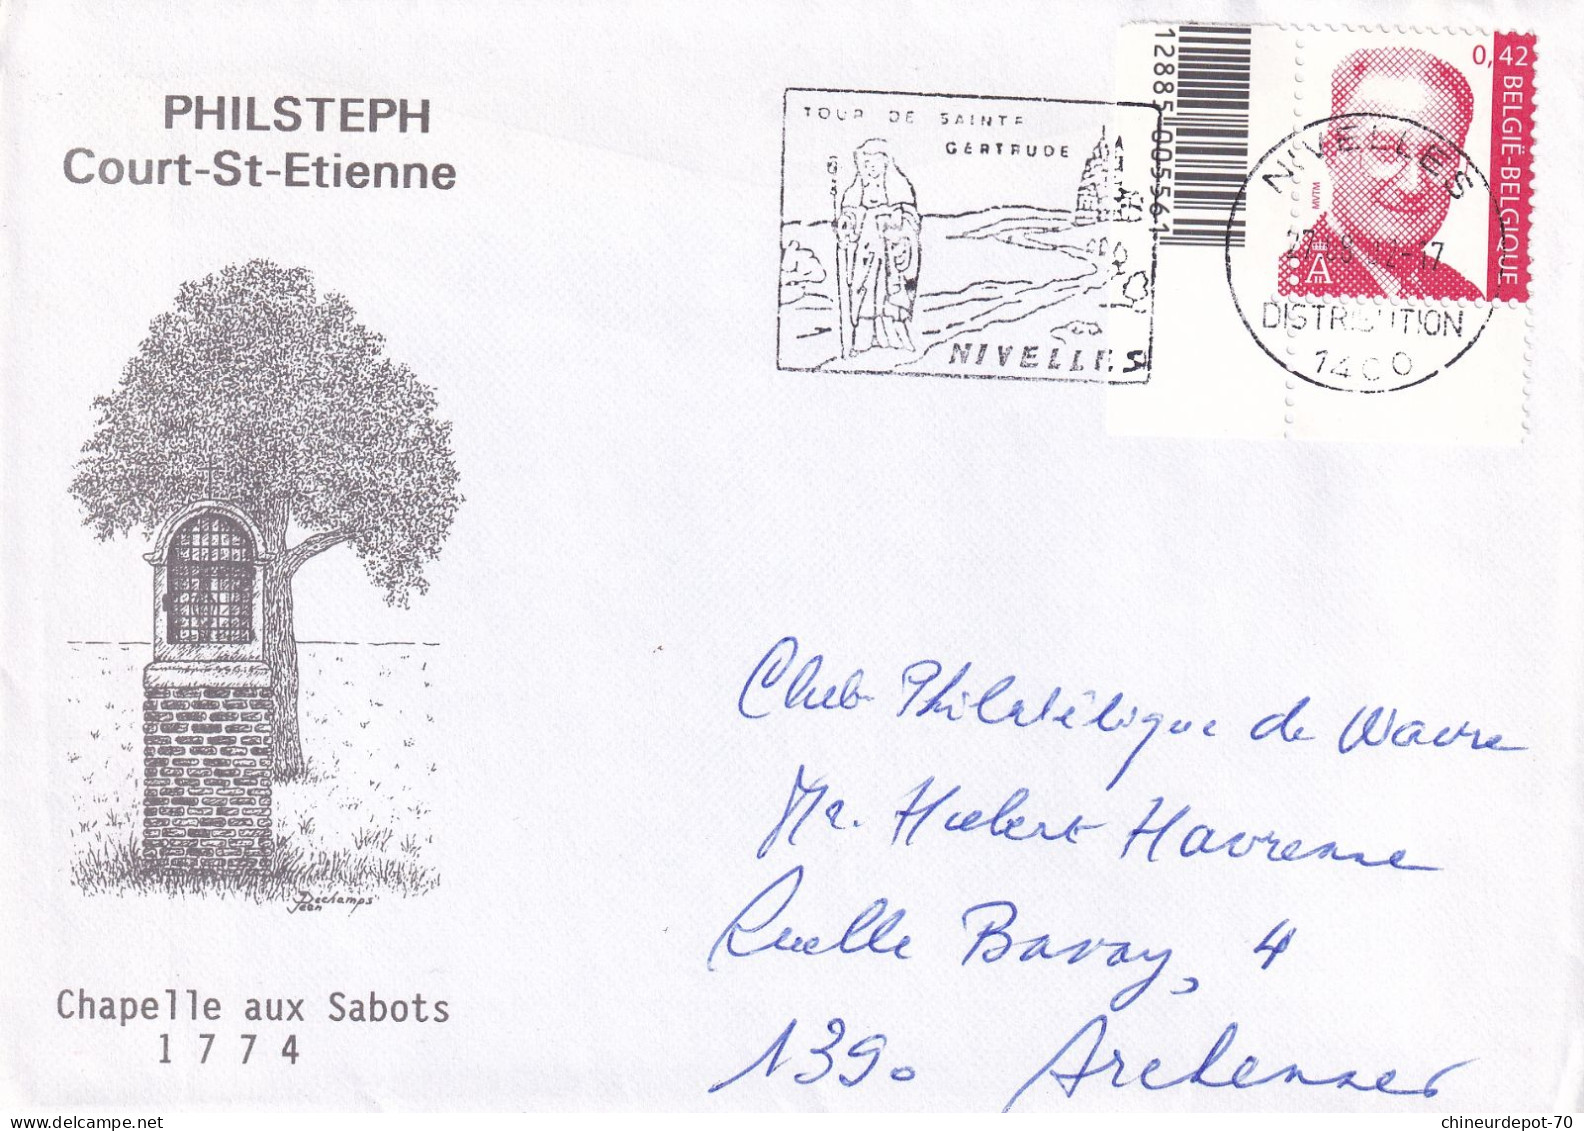 PHILSTEPH
Court-St-Etienne
TOUR DE SAINTE
GERTRUDE
NIVELLES
12885 005561
0,42
BELGIË-BELGIQUE
MVTM
A
NIVELLES
02-17
DISTRIBUTION
1400
Club Philatélique de Wavre
Mr. Hubert Havrenne
Ruelle Bavay, 4
1390 Archennes
Jean Dechamps
Chapelle aux Sabots
1774
delcampe.net
chineurdepot-70